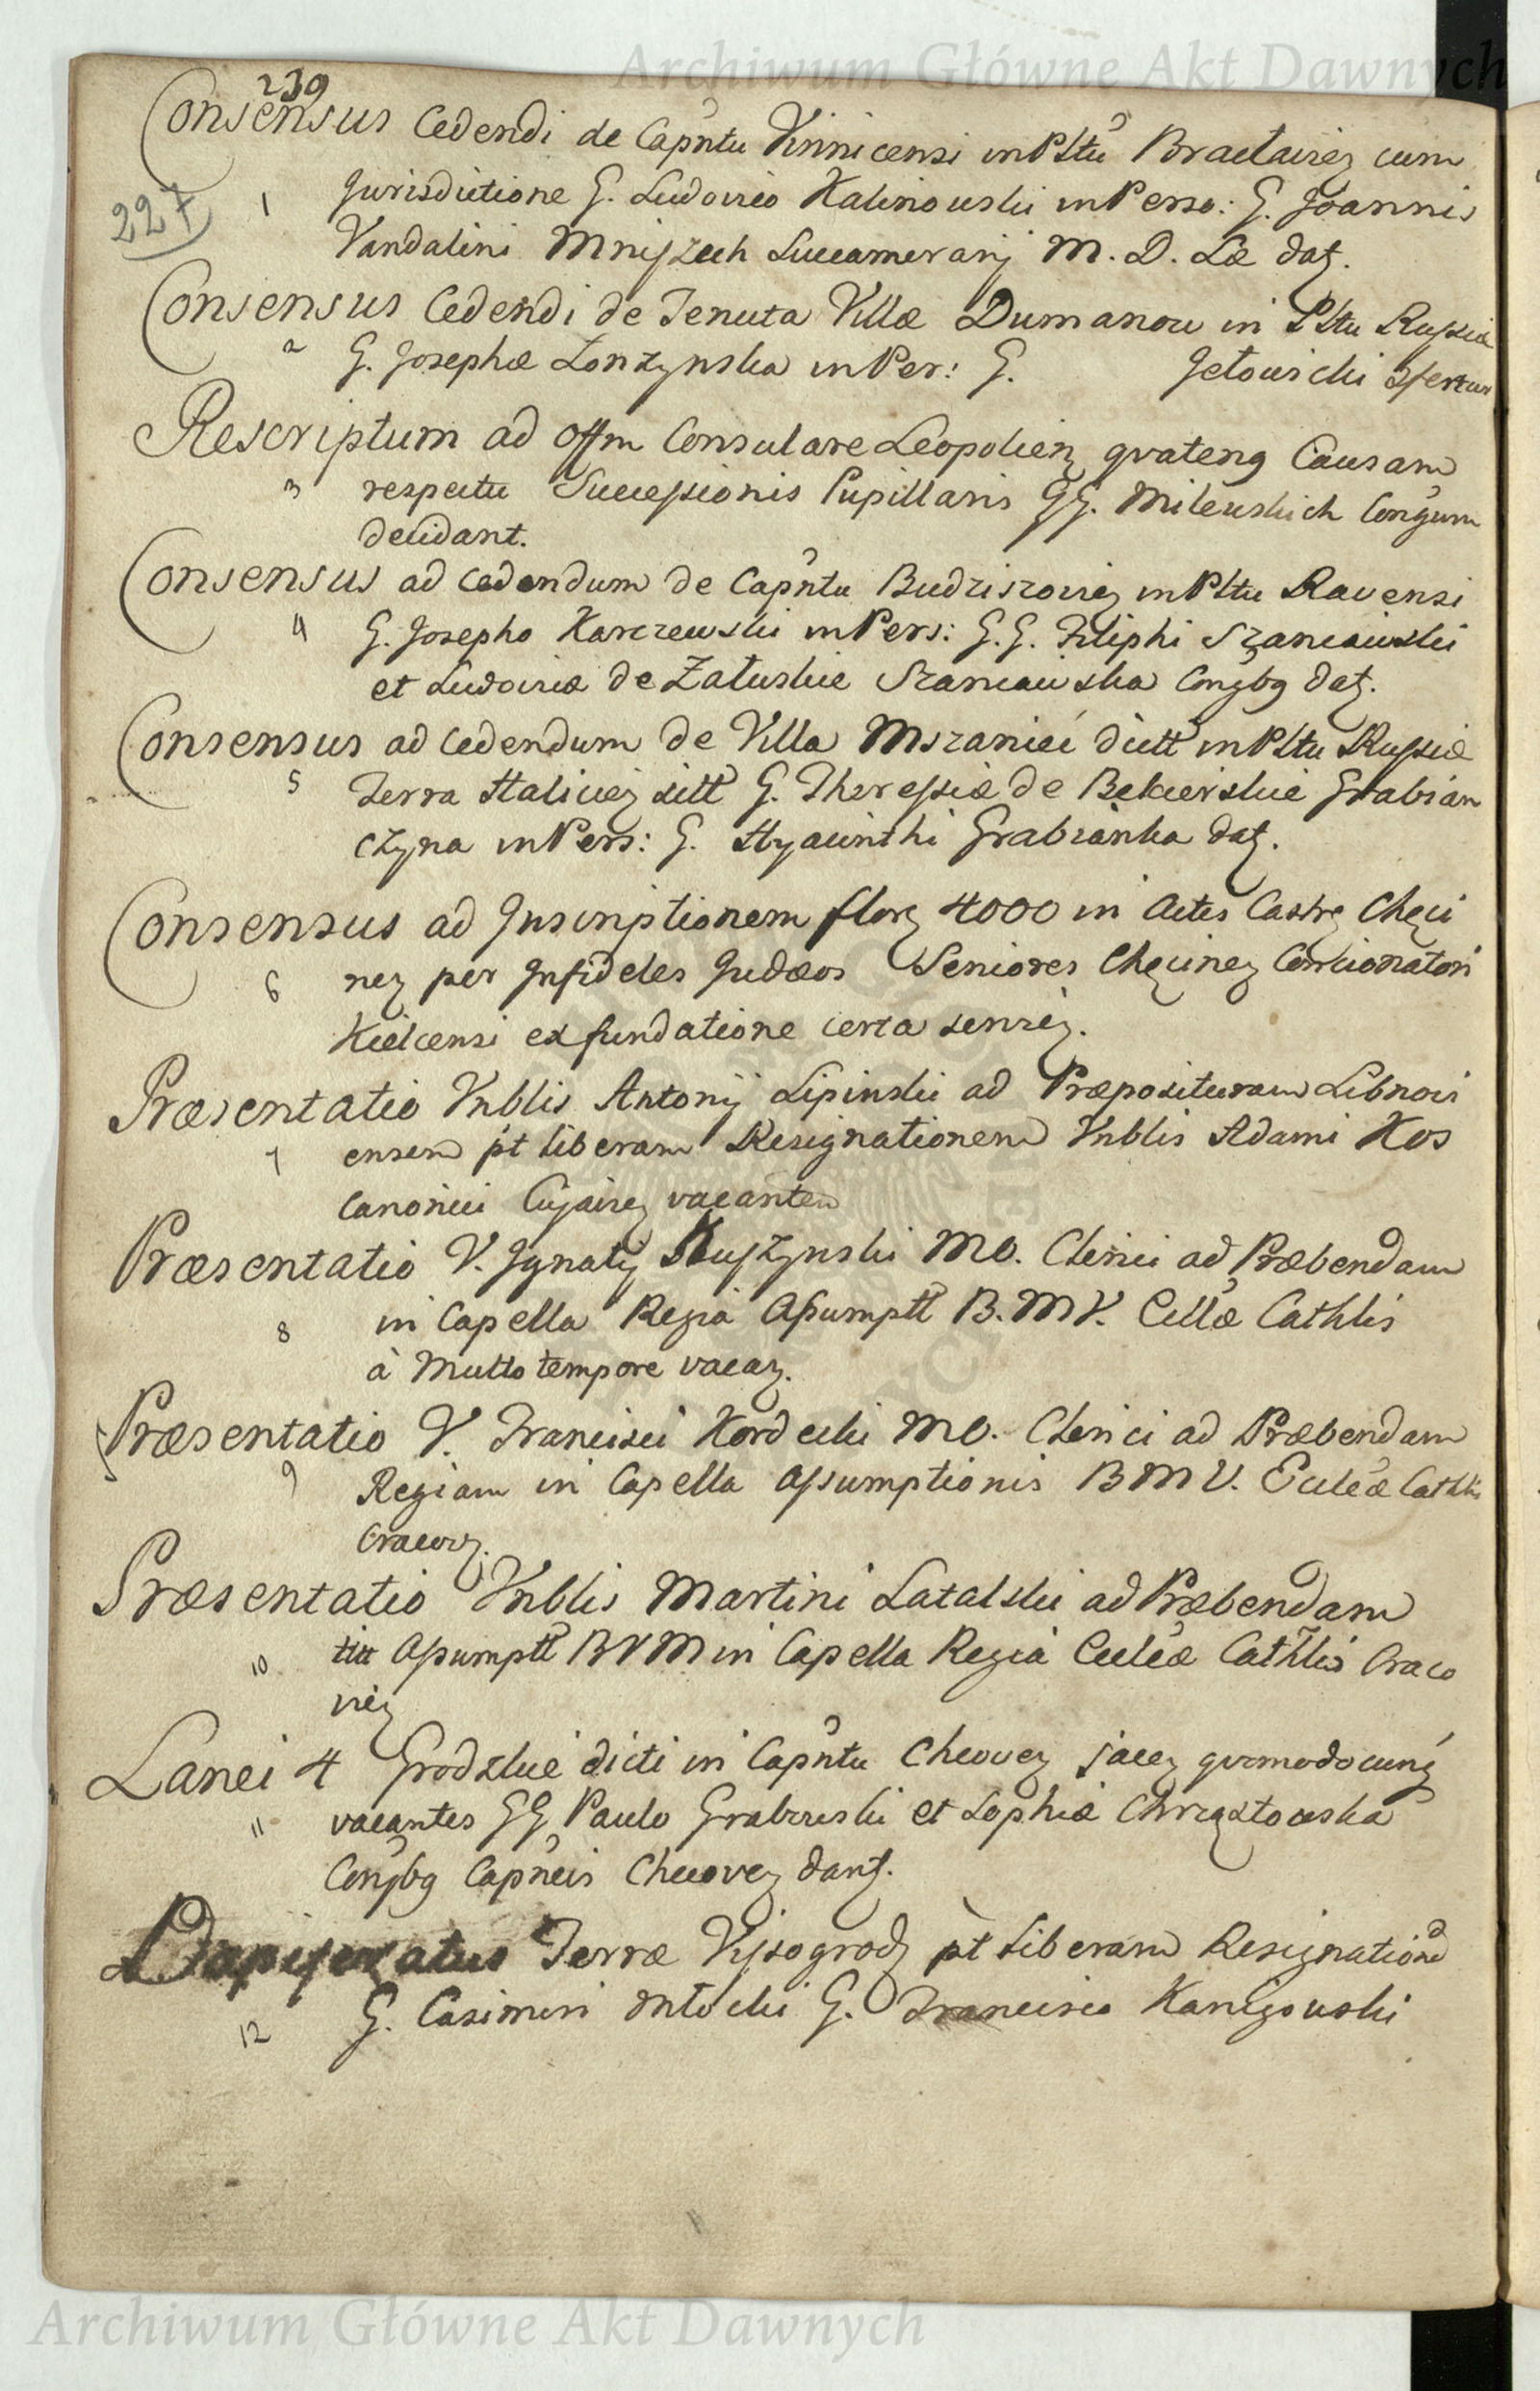 Archiwum Główne Akt Dawnych
239
Consensus Cedendi de Capntu Vinnicensi in Pltu Braclavien cum
227
1 Jurisdictione G. Ludovico Kalinowski in Perso: G. Joannis
Vandalini Mniszech Succamerarij M. D. Læ dat.
Consensus Cedendi de Tenuta Villæ Dumanow in Pltu Russiæ
2 G. Josephæ Lonzynska in Per: G. Jelowicki
Rescriptum ad Offm Consulare Leopolien quatenq Causam
3 respectu Successionis Pupillaris GG. Milewskich Congum
decidant.
Consensus ad cedendum de Capntu Budziszovien in Pltu Ravensi
4 G. Josepho Karczewski in Pers: G.G. Filiphi Szaniawski
et Ludovicæ de Załuskie Szaniawska Conjbq dat.
Consensus ad cedendum de Villa Mszaniec dictt in Pltu Russiæ
5 Terra Halicien sitt G. Theressiæ de Bekierskie Grabian
czyna in Pers: G. Hyacinthi Grabianka dat.
Consensus ad Inscriptionem flor 4000 in Actis Castr Chęci
6 nen per Infideles Judæos Seniores Chęcinen Concionatori
Kielcensi ex fundatione certa
Præsentatio Vnblis Antonij Lipinski ad Præposituram Libnovi
7 ensem pt liberam Resignationem Vnblis Adami Kos
Canonici Cujavien vacantem
Præsentatio V. Ignatij Kuszynski MO. Clerici ad Præbendam
8 in Capella Regia Assumptt B.M V. Cclæ Cathlis
à Multo tempore vacan.
Præsentatio V. Francisci Kordecki MO. Clerici ad Præbendam
9 Regiam in Capella Assumptionis B M V. Ecclæ Cathlis
Cracov.
Præsentatio Vnblis Martini Latalski ad Præbendam
10 titt Assumptt BVM in Capella Regia Ecclæ Cathlis Craco
vien
Lanei 4 Grodzkie dicti in Capntu Checoven jacen quomodocunq
11 vacantes GG Paulo Grabowski et Sophiæ Chrząstowska
Conjbq Capneis Checoven dant.
Dapiferatus Terræ Vyssogrod pt liberam Resignatione
12 G. Casimiri G. Francisco Kanigowski
Archiwum Główne Akt Dawnych